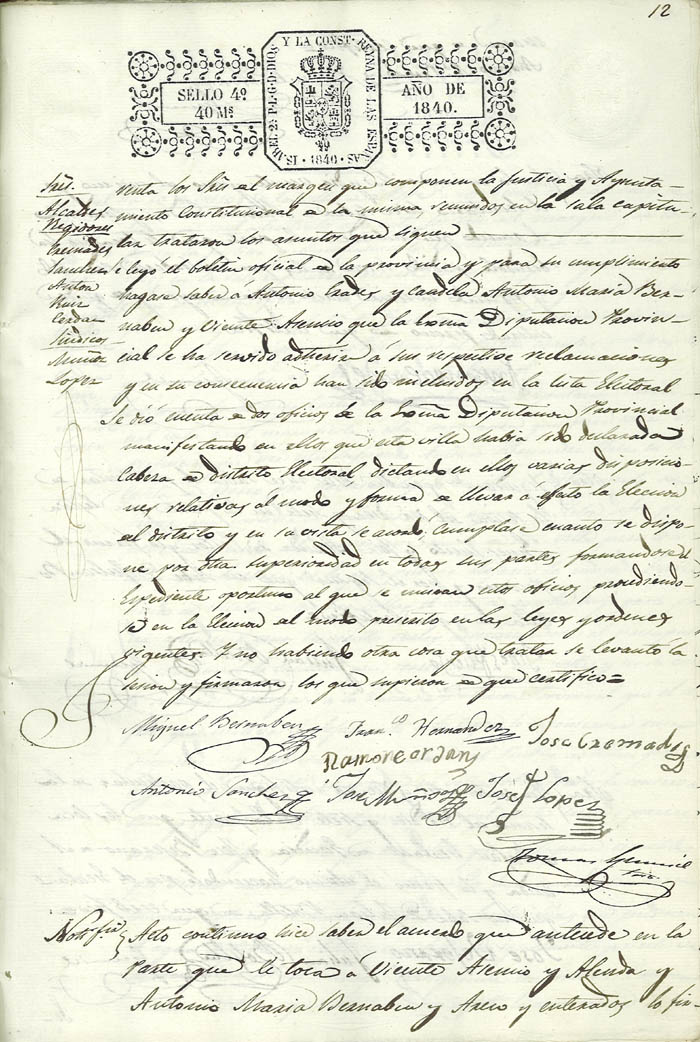 12
SELLO 4º
40 Ms
ISABEL 2ª P. L. G. D. DIOS Y LA CONST. REYNA DE LAS ESPAÑAS
· 1840 ·
AÑO DE
1840.
Sres.
Alcaldes
Regidores
Cremades
Sanchez
Anton
Ruiz
Cerdan
Sindicos
Muñoz
Lopez
venta los Sres al margen que componen la Justicia y Ayunta-
miento Constitucional de la misma reunidos en la sala Capitu-
lar trataron los asuntos que siguen
Se leyó el boletin oficial de la provincia y para su cumplimiento
hagase saber á Antonio Prades y Candela Antonio Maria Ber-
nabeu y Vicente Asensio que la Exma Diputacion Provin-
cial se ha servido adherir á sus respectivas reclamaciones
y en su consecuencia han sido incluidos en la lista Electoral
Se dió cuenta de dos oficios de la Exma Diputacion Provincial
manifestando en ellos que esta villa habia sido declarada
Cabeza de distrito Electoral, dictando en ellos varias disposicio-
nes relativas al modo y forma de llevar á efecto la Eleccion
del distrito y en su vista se acordó, Cumplase cuanto se dispo-
ne por dha. superioridad en todas sus partes formandose el
Espediente oportuno al que se uniran estos oficios procediendo-
se en la Eleccion del modo prescrito en las leyes y ordenes
vigentes. Y no habiendo otra cosa que tratar se levantó la
sesion y firmaron los que supieron de que certifico =
Miguel Bernabeu Franco Hernandez Jose Cremades
Ramon Cerdan
Antonio Sanchez Jose Muñoz José Lopez
Tomas
Srio.
Notifon Acto continuo hice saber el acuerdo que antecede en la
parte que le toca á Vicente Asensio y Alenda y
Antonio Maria Bernabeu y Asen y enterados lo fir-